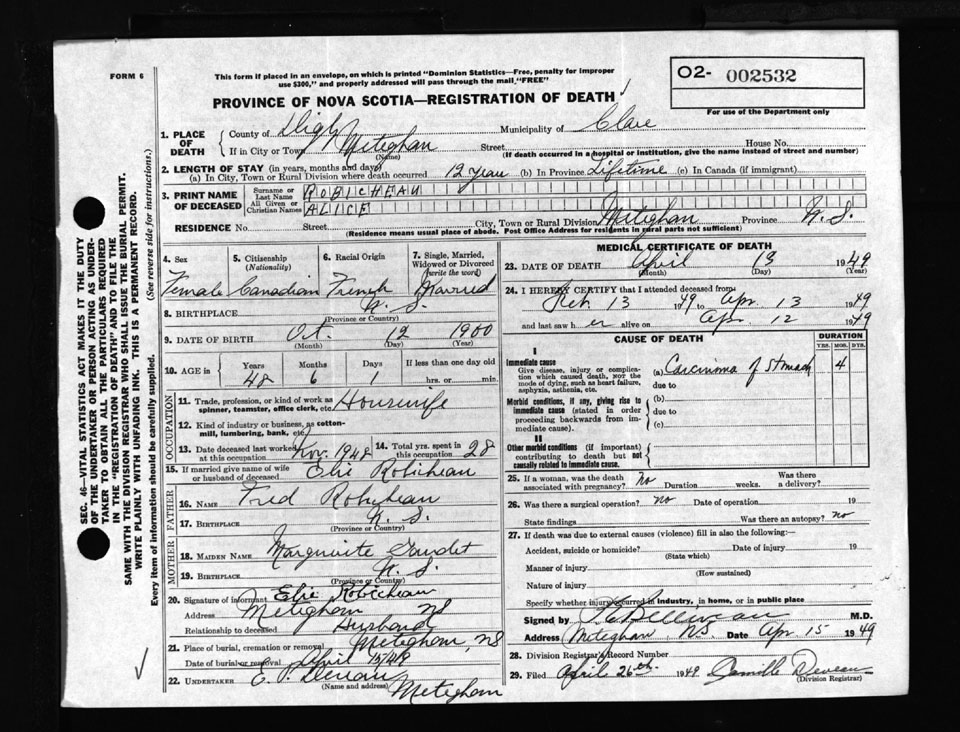 FORM 6
This form if placed in an envelope, on which is printed "Dominion Statistics—Free, penalty for improper
use $300," and properly addressed will pass through the mail "FREE"
O2- 002532
For use of the Department only
PROVINCE OF NOVA SCOTIA—REGISTRATION OF DEATH
1. PLACE OF DEATH
County of Digby Municipality of Clare
If in City or Town Meteghan (Name) Street House No.
(If death occurred in a hospital or institution, give the name instead of street and number)
2. LENGTH OF STAY (in years, months and days)
(a) In City, Town or Rural Division where death occurred 12 years (b) In Province Lifetime (c) In Canada (if immigrant)
3. PRINT NAME OF DECEASED
Surname or Last Name ROBICHEAU
All Given or Christian Names ALICE
RESIDENCE No. Street City, Town or Rural Division Meteghan Province N. S.
(Residence means usual place of abode. Post Office Address for residents in rural parts not sufficient)
4. Sex
Female
5. Citizenship (Nationality)
Canadian
6. Racial Origin
French
7. Single, Married, Widowed or Divorced (write the word)
Married
8. BIRTHPLACE N. S.
(Province or Country)
9. DATE OF BIRTH Oct. 12 1900
(Month) (Day) (Year)
10. AGE in Years Months Days If less than one day old
48 6 1 hrs. or min.
OCCUPATION
11. Trade, profession, or kind of work as spinner, teamster, office clerk, etc. Housewife
12. Kind of industry or business, as cotton-mill, lumbering, bank, etc.
13. Date deceased last worked at this occupation Nov. 1948
14. Total yrs. spent in this occupation 28
15. If married give name of wife or husband of deceased Elie Robicheau
FATHER
16. NAME Fred Robicheau
17. BIRTHPLACE N. S.
(Province or Country)
MOTHER
18. MAIDEN NAME Marguerite Gaudet
19. BIRTHPLACE N. S.
(Province or Country)
20. Signature of informant Elie Robicheau
Address Meteghan NS
Relationship to deceased Husband
21. Place of burial, cremation or removal Meteghan, NS
Date of burial or removal April 15/49
22. UNDERTAKER E. P. Deveau Meteghan
(Name and address)
MEDICAL CERTIFICATE OF DEATH
23. DATE OF DEATH April 13 1949
(Month) (Day) (Year)
24. I HEREBY CERTIFY that I attended deceased from
Feb. 13 1949 to Apr. 13 1949
and last saw her alive on Apr. 12 1949
CAUSE OF DEATH
DURATION
YRS. MOS. DYS.
I
Immediate cause
Give disease, injury or complication which caused death, nor the mode of dying, such as heart failure, asphyxia, asthenia, etc.
(a) Carcinoma of Stomach 4
due to
Morbid conditions, if any, giving rise to immediate cause (stated in order proceeding backwards from immediate cause).
(b)
due to
(c)
II
Other morbid conditions (if important) contributing to death but not causally related to immediate cause.
25. If a woman, was the death associated with pregnancy? No Duration weeks. Was there a delivery?
26. Was there a surgical operation? no Date of operation 19
State findings Was there an autopsy? no
27. If death was due to external causes (violence) fill in also the following:—
Accident, suicide or homicide? Date of injury 19
(State which)
Manner of injury
(How sustained)
Nature of injury
Specify whether injury occurred in industry, in home, or in public place
Signed by M.D.
Address Meteghan, NS Date Apr 15 1949
28. Division Registrar's Record Number
29. Filed April 26th 1949 Camille Deveau
(Division Registrar)
SEC. 46—VITAL STATISTICS ACT MAKES IT THE DUTY
OF THE UNDERTAKER OR PERSON ACTING AS UNDER-
TAKER TO OBTAIN ALL THE PARTICULARS REQUIRED
IN THE "REGISTRATION OF DEATH" AND TO FILE THE
SAME WITH THE DIVISION REGISTRAR WHO SHALL ISSUE THE BURIAL PERMIT.
WRITE PLAINLY WITH UNFADING INK. THIS IS A PERMANENT RECORD.
Every item of information should be carefully supplied. (See reverse side for instructions.)